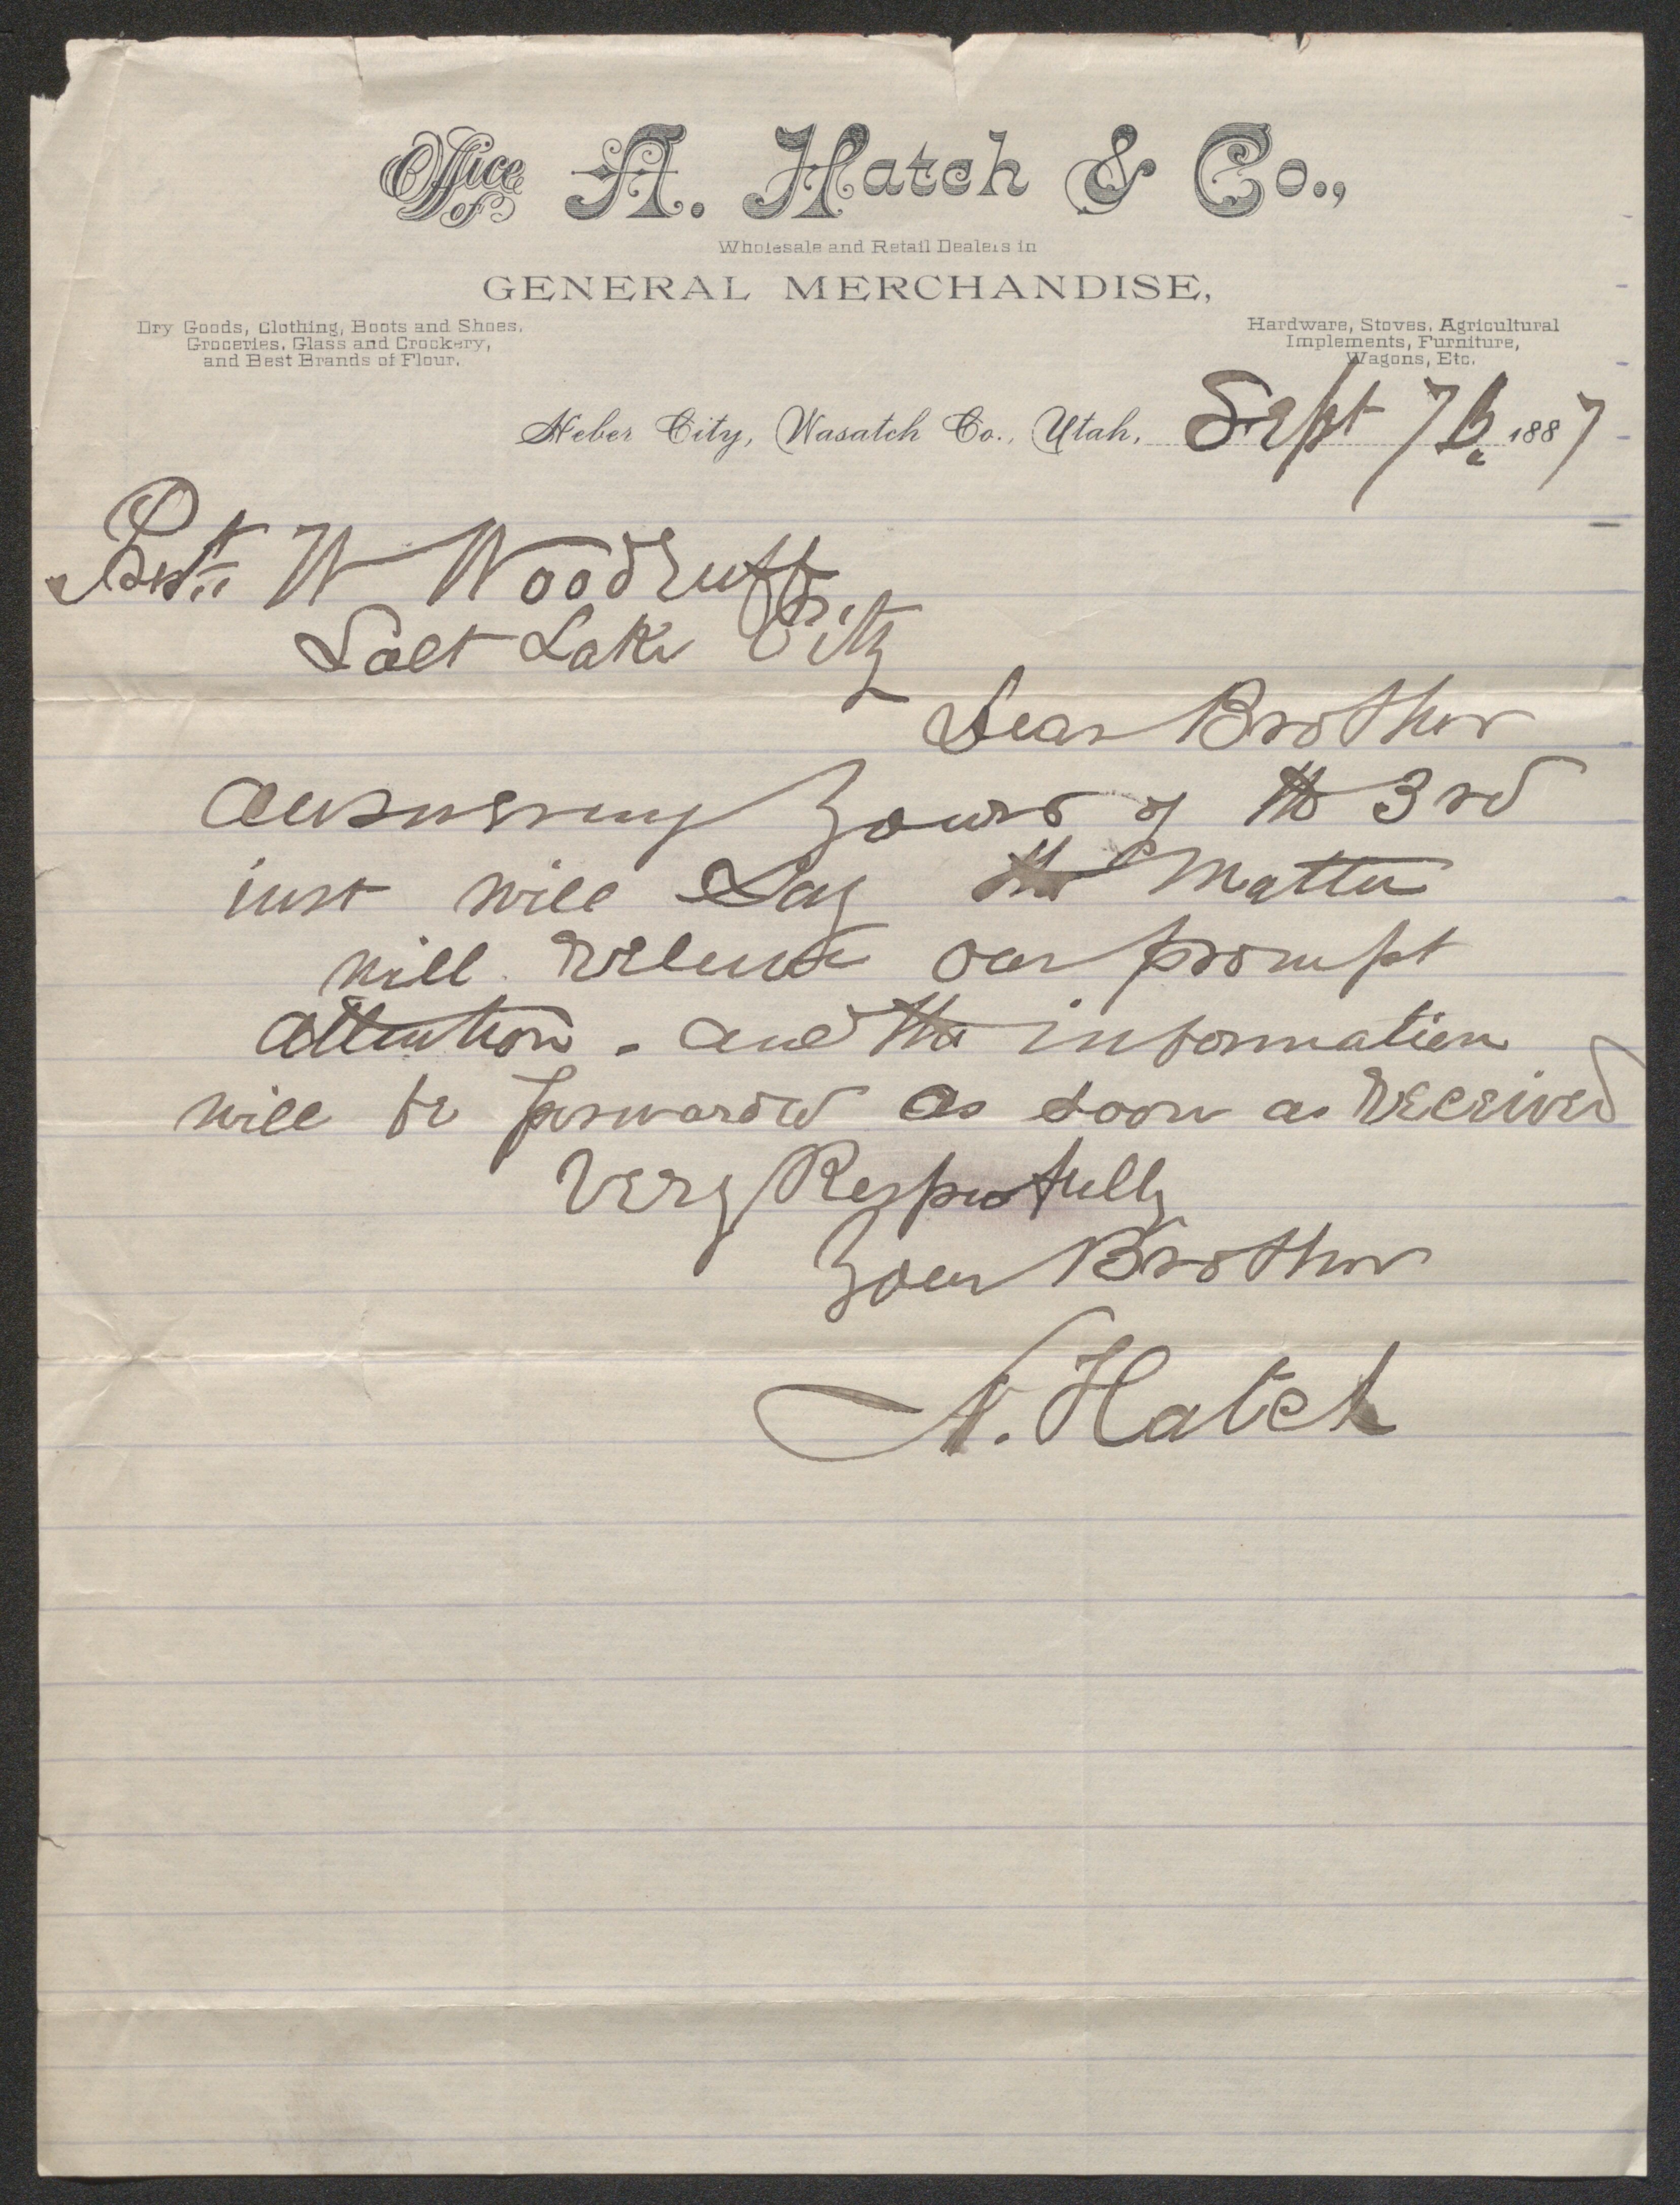 Office of A. Hatch & Co.,
Wholesale and Retail Dealers in
GENERAL MERCHANDISE,
Dry Goods, Clothing, Boots and Shoes,
Groceries, Glass and Crockery,
and Best Brands of Flour.
Hardware, Stoves, Agricultural
Implements, Furniture,
Wagons, Etc.
Heber City, Wasatch Co., Utah, Sept 7th 1887
Prest. W Woodruff
Salt Lake City
Dear Brother
answering Yours of the 3rd
inst will Say the Matter
will receive our prompt
attention. and the information
will be forwarded as soon as Received
Very Respectfully
Your Brother
A. Hatch